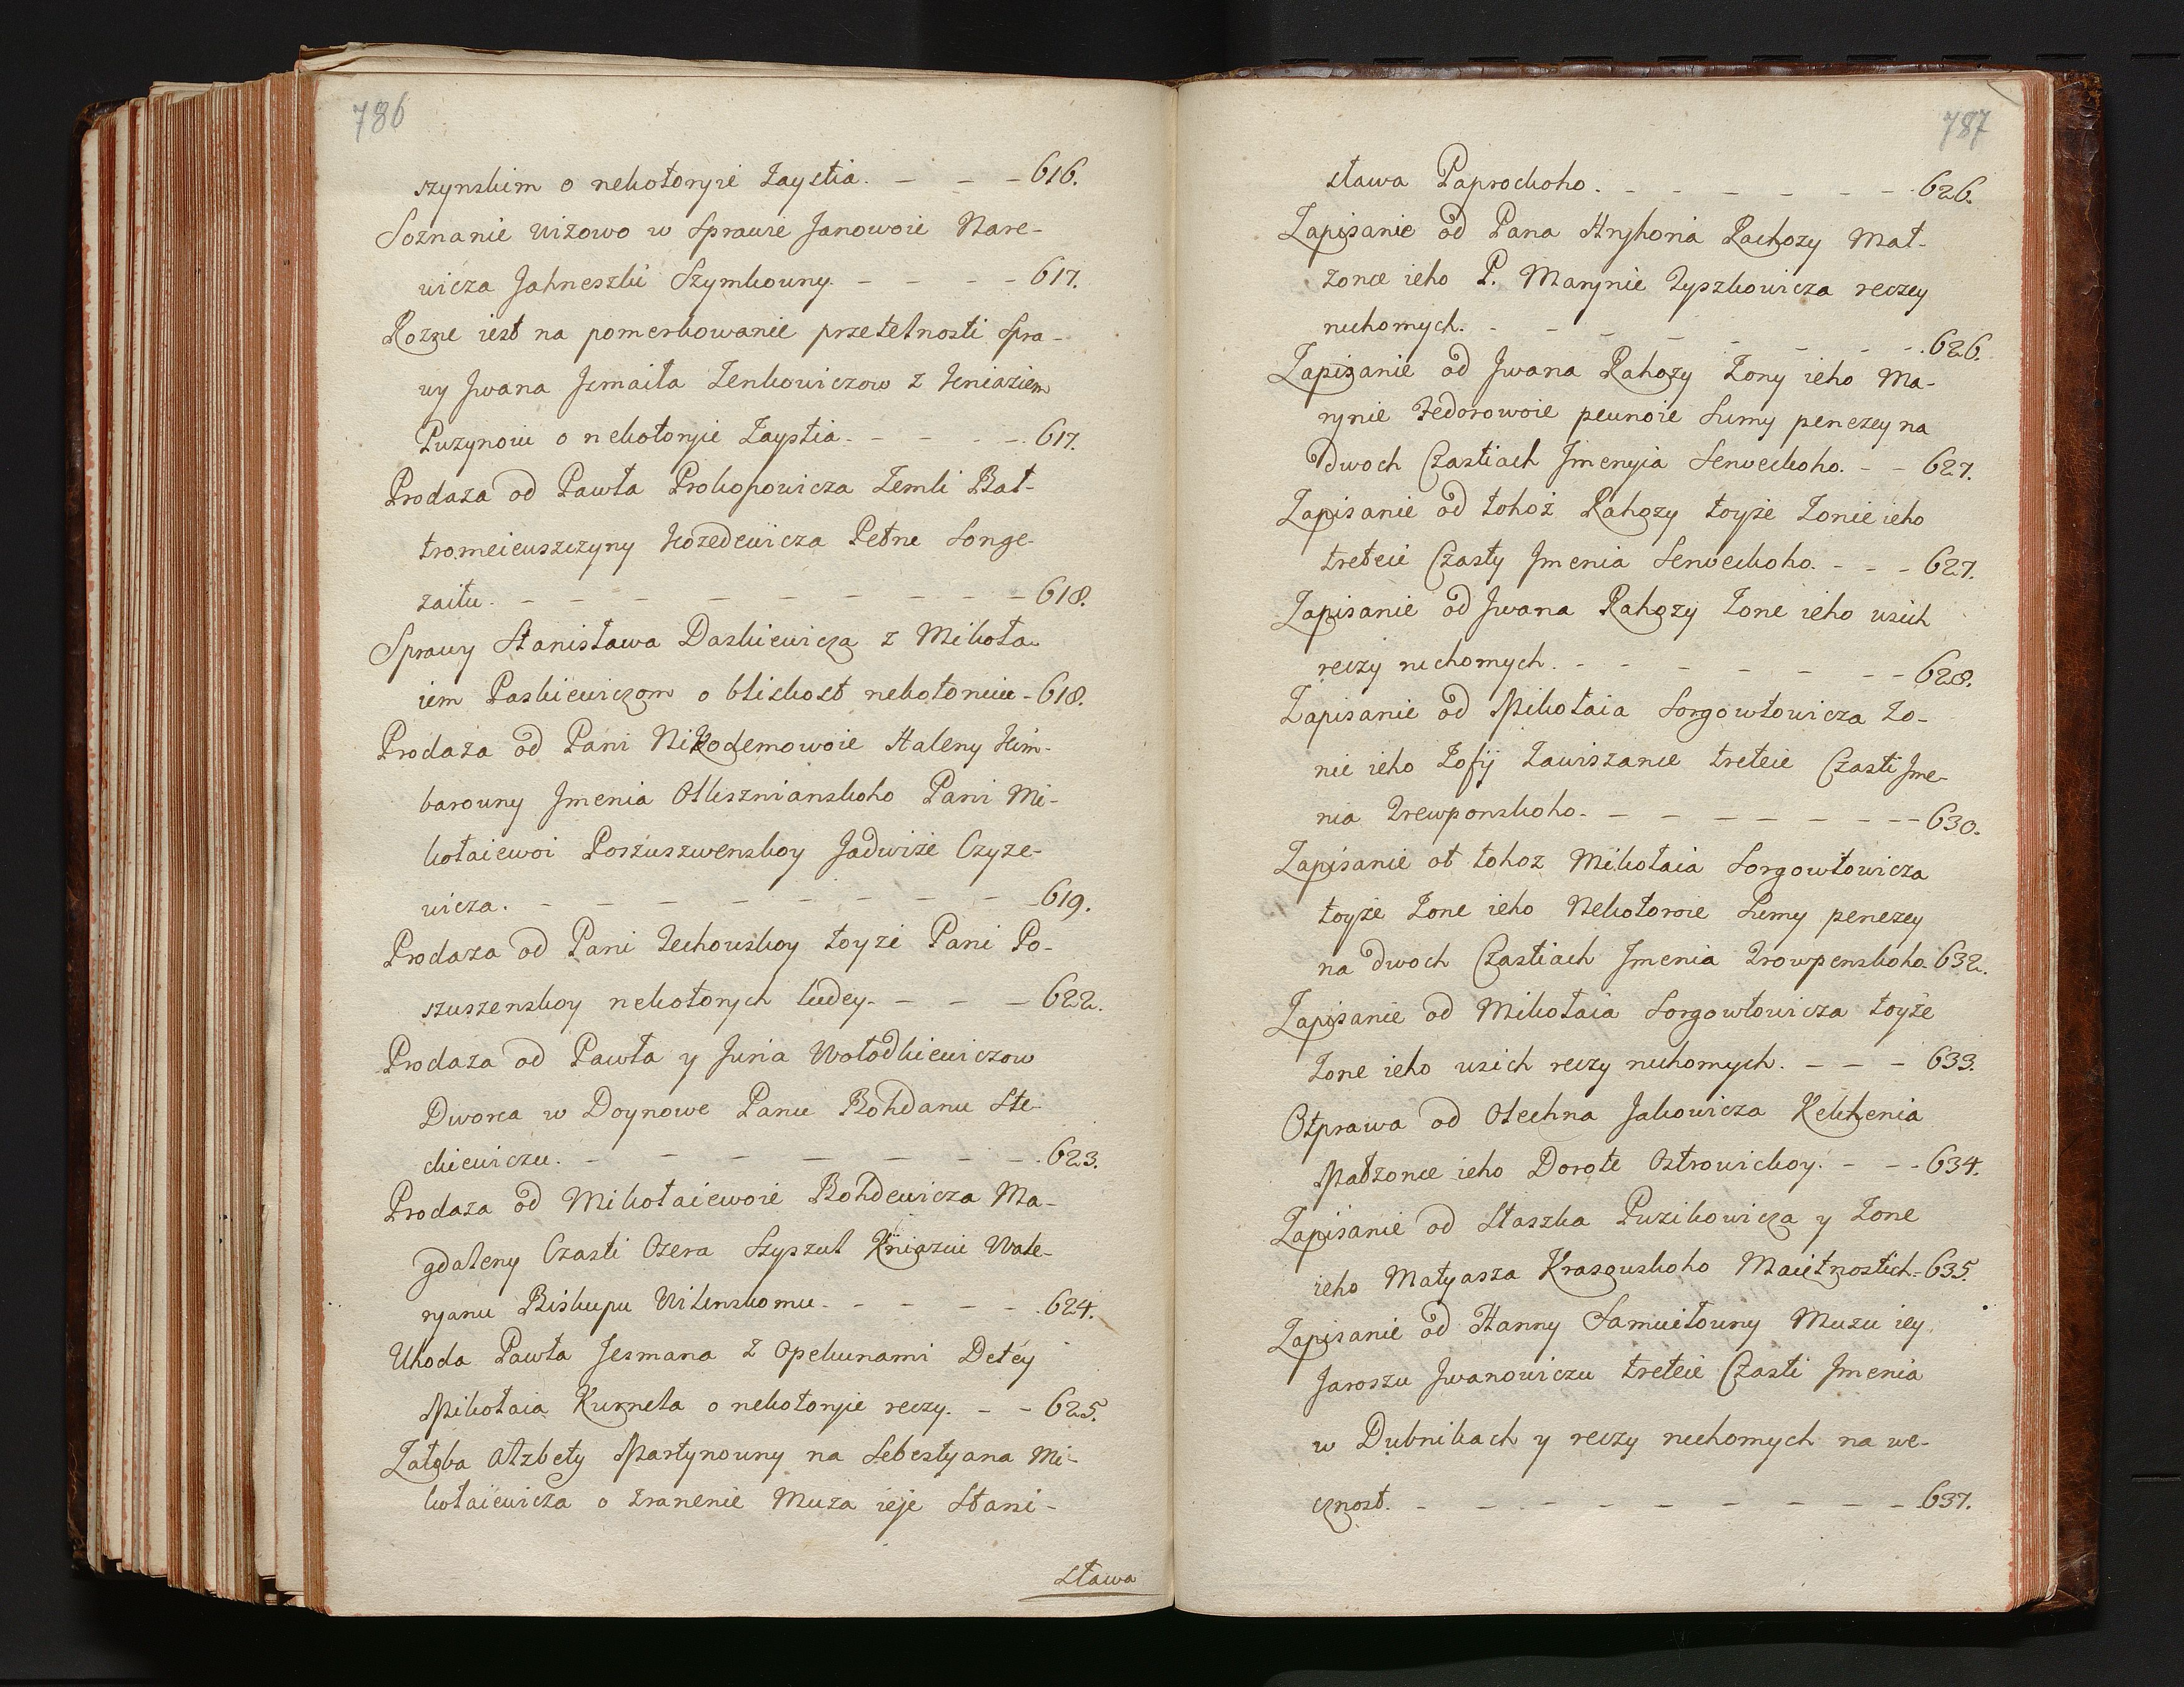 786
szynskim o nekotoryie Zaystia. - - - 616.
Soznanie wizowo w Sprawie Janowoie Nare-
wicza Jahneszki Szymkowny. - - - - 617.
Rozne iest na pomerkowanie przetelnosti Spra-
wy Jwana Jzmaiła Zenkowiczow z Kniaziem
Puzynoiu o nekotoryie Zaystia. - - - - 617.
Prodaza od Pawła Prokopowicza Zemli Bał-
tromeiewszczyny Kozedewicza Petru Songe-
zaitu. - - - - - - - - - 618.
Sprawy Stanisława Daskiewicza z Mikoła-
iem Paskiewiczom o bliskost nekotoruiu - 618.
Prodaza od Pani Nikodemowoie Haleny Kim-
barowny Jmenia Olkisznianskoho Pani Mi-
kołaiewoi Poszuszwenskoy Jadwize Czyze-
wicza. - - - - - - - - 619.
Prodaza od Pani Zechowskoy toyze Pani Po-
szuszenskoy nekotorych ludey. - - - 622.
Prodaza od Pawła y Juria Wołodkiewiczow
Dworca w Doynowe Panu Bohdanu Ste-
ckiewiczu. - - - - - - - 623.
Prodaza od Mikołaiewoie Bohdewicza Ma-
gdaleny Czasti Ozera Szyszul Kniaziu Wale-
ryanu Biskupu Wilenskomu. - - - - 624.
Uhoda Pawła Jesmana z Opekunami Detey
Mikołaia Kurneła o nekotoryie reczy. - - 625.
Załoba Alzbety Martynowny na Sebestyana Mi-
kołaiewicza o zranenie Muza ieje Stani-
sława
787
sława Paprockoho. - - - - - - 626.
Zapisanie od Pana Hryhoria Rachozy Mał-
zonce ieho P. Marynie Tyszkowicza reczey
ruchomych. - - - - - - - 626.
Zapisanie od Jwana Rahozy Zony ieho Ma-
rynie Fedorowoie pewnoie Sumy penezey na
dwoch Czastiach Jmenyia Serweckoho. - - 627.
Zapisanie od tohoz Rahozy toyże Zonie ieho
treteie Czasty Jmenia Serweckoho. - - - 627.
Zapisanie od Jwana Rahozy Zone ieho wsich
reczy ruchomych. - - - - - - - 628.
Zapisanie od Mikołaia Sorgowtowicza Zo-
nie ieho Zofij Zawiszance treteie Czasti Jme-
nia Trewponskoho. - - - - - - - 630.
Zapisanie ot tohoz Mikołaia Sorgowtowicza
toyże Zone ieho Nekotoroie Sumy penezey
na dwoch Czastiach Jmenia Trowpenskoho. 632.
Zapisanie od Mikołaia Sorgowtowicza toyże
Zone ieho wsich reczy ruchomych. - - - 633.
Otprawa od Olechna Jakowicza
Małzonce ieho Dorote Ostrowickoy. - - - 634.
Zapisanie od Staszka Puzikowicza y Zone
ieho Matyasza Krasouskoho Maietnostich. - 635.
Zapisanie od Hanny Samuiłowny Muzu iey
Jaroszu Jwanowiczu treteie Czasti Jmenia
w Dubnikach y reczy ruchomych na we-
cznost. - - - - - - - - - - 637.